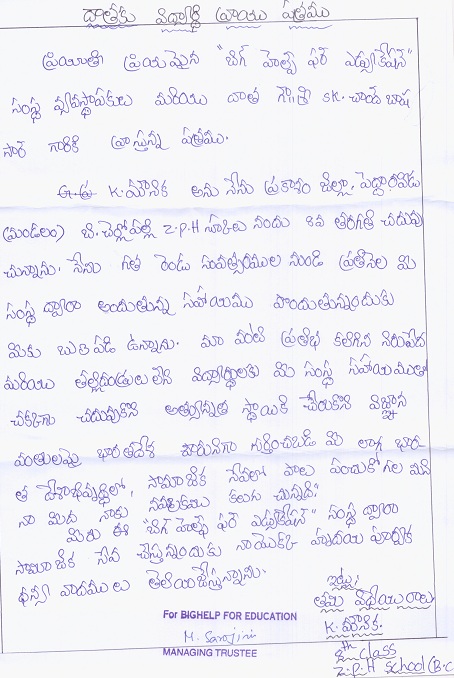 దాతకు విద్యార్థి వ్రాయు పత్రము
ప్రియాతి ప్రియమైన "బిగ్ హెల్ప్ ఫర్ ఎడ్యుకేషన్"
సంస్థ వ్యవస్థాపకులు మరియు దాత గౌ శ్రీ SK. చాంద్ బాష
సార్ గారికి వ్రాస్తున్న పత్రము.
K. మౌనిక అను నేను ప్రకాశం జిల్లా, పెద్దారవీడు
(మండలం) బి. చెర్లోపల్లి Z.P.H స్కూలు నందు 8వ తరగతి చదువు
చున్నాను. నేను గత రెండు సంవత్సరముల నుండి ప్రతినెల మీ
సంస్థ ద్వారా అందుతున్న సహాయము పొందుతున్నందుకు
మీకు ఋణపడి ఉన్నాను. మా వంటి ప్రతిభ కలిగిన నిరుపేద
మరియు తల్లిదండ్రులు లేని విద్యార్థులకు మీ సంస్థ సహాయముతో
చక్కగా చదువుకొని అత్యున్నత స్థాయికి చేరుకొని విజ్ఞాన
వంతులమై భారతదేశ పౌరునిగా గుర్తించబడి మీ లాగ భార-
త దేశాభివృద్ధిలో, సామాజిక సేవలో పాలు పంచుకోగల మని
నా మీద నాకు నమ్మకము కలుగు చున్నది.
మీరు ఈ "బిగ్ హెల్ప్ ఫర్ ఎడ్యుకేషన్" సంస్థ ద్వారా
సామాజిక సేవ చేస్తున్నందుకు నాయొక్క హృదయ పూర్వక
ధన్యవాదములు తెలియజేస్తున్నాను.
ఇట్లు,
తమ విధేయురాలు
K. మౌనిక.
8th class
Z.P.H School (B.C
For BIGHELP FOR EDUCATION
M. Sarojini
MANAGING TRUSTEE